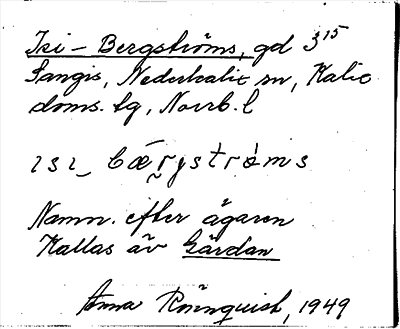 Isi-Bergströms, gd 3¹⁵
Sangis, Nederkalix sn, Kalix
doms. lg, Norrb. l
ısı_ bæ̀r̰gströ̀ms
Namn. efter ägaren
Kallas äv Gärdan
Anna Rönnquist, 1949